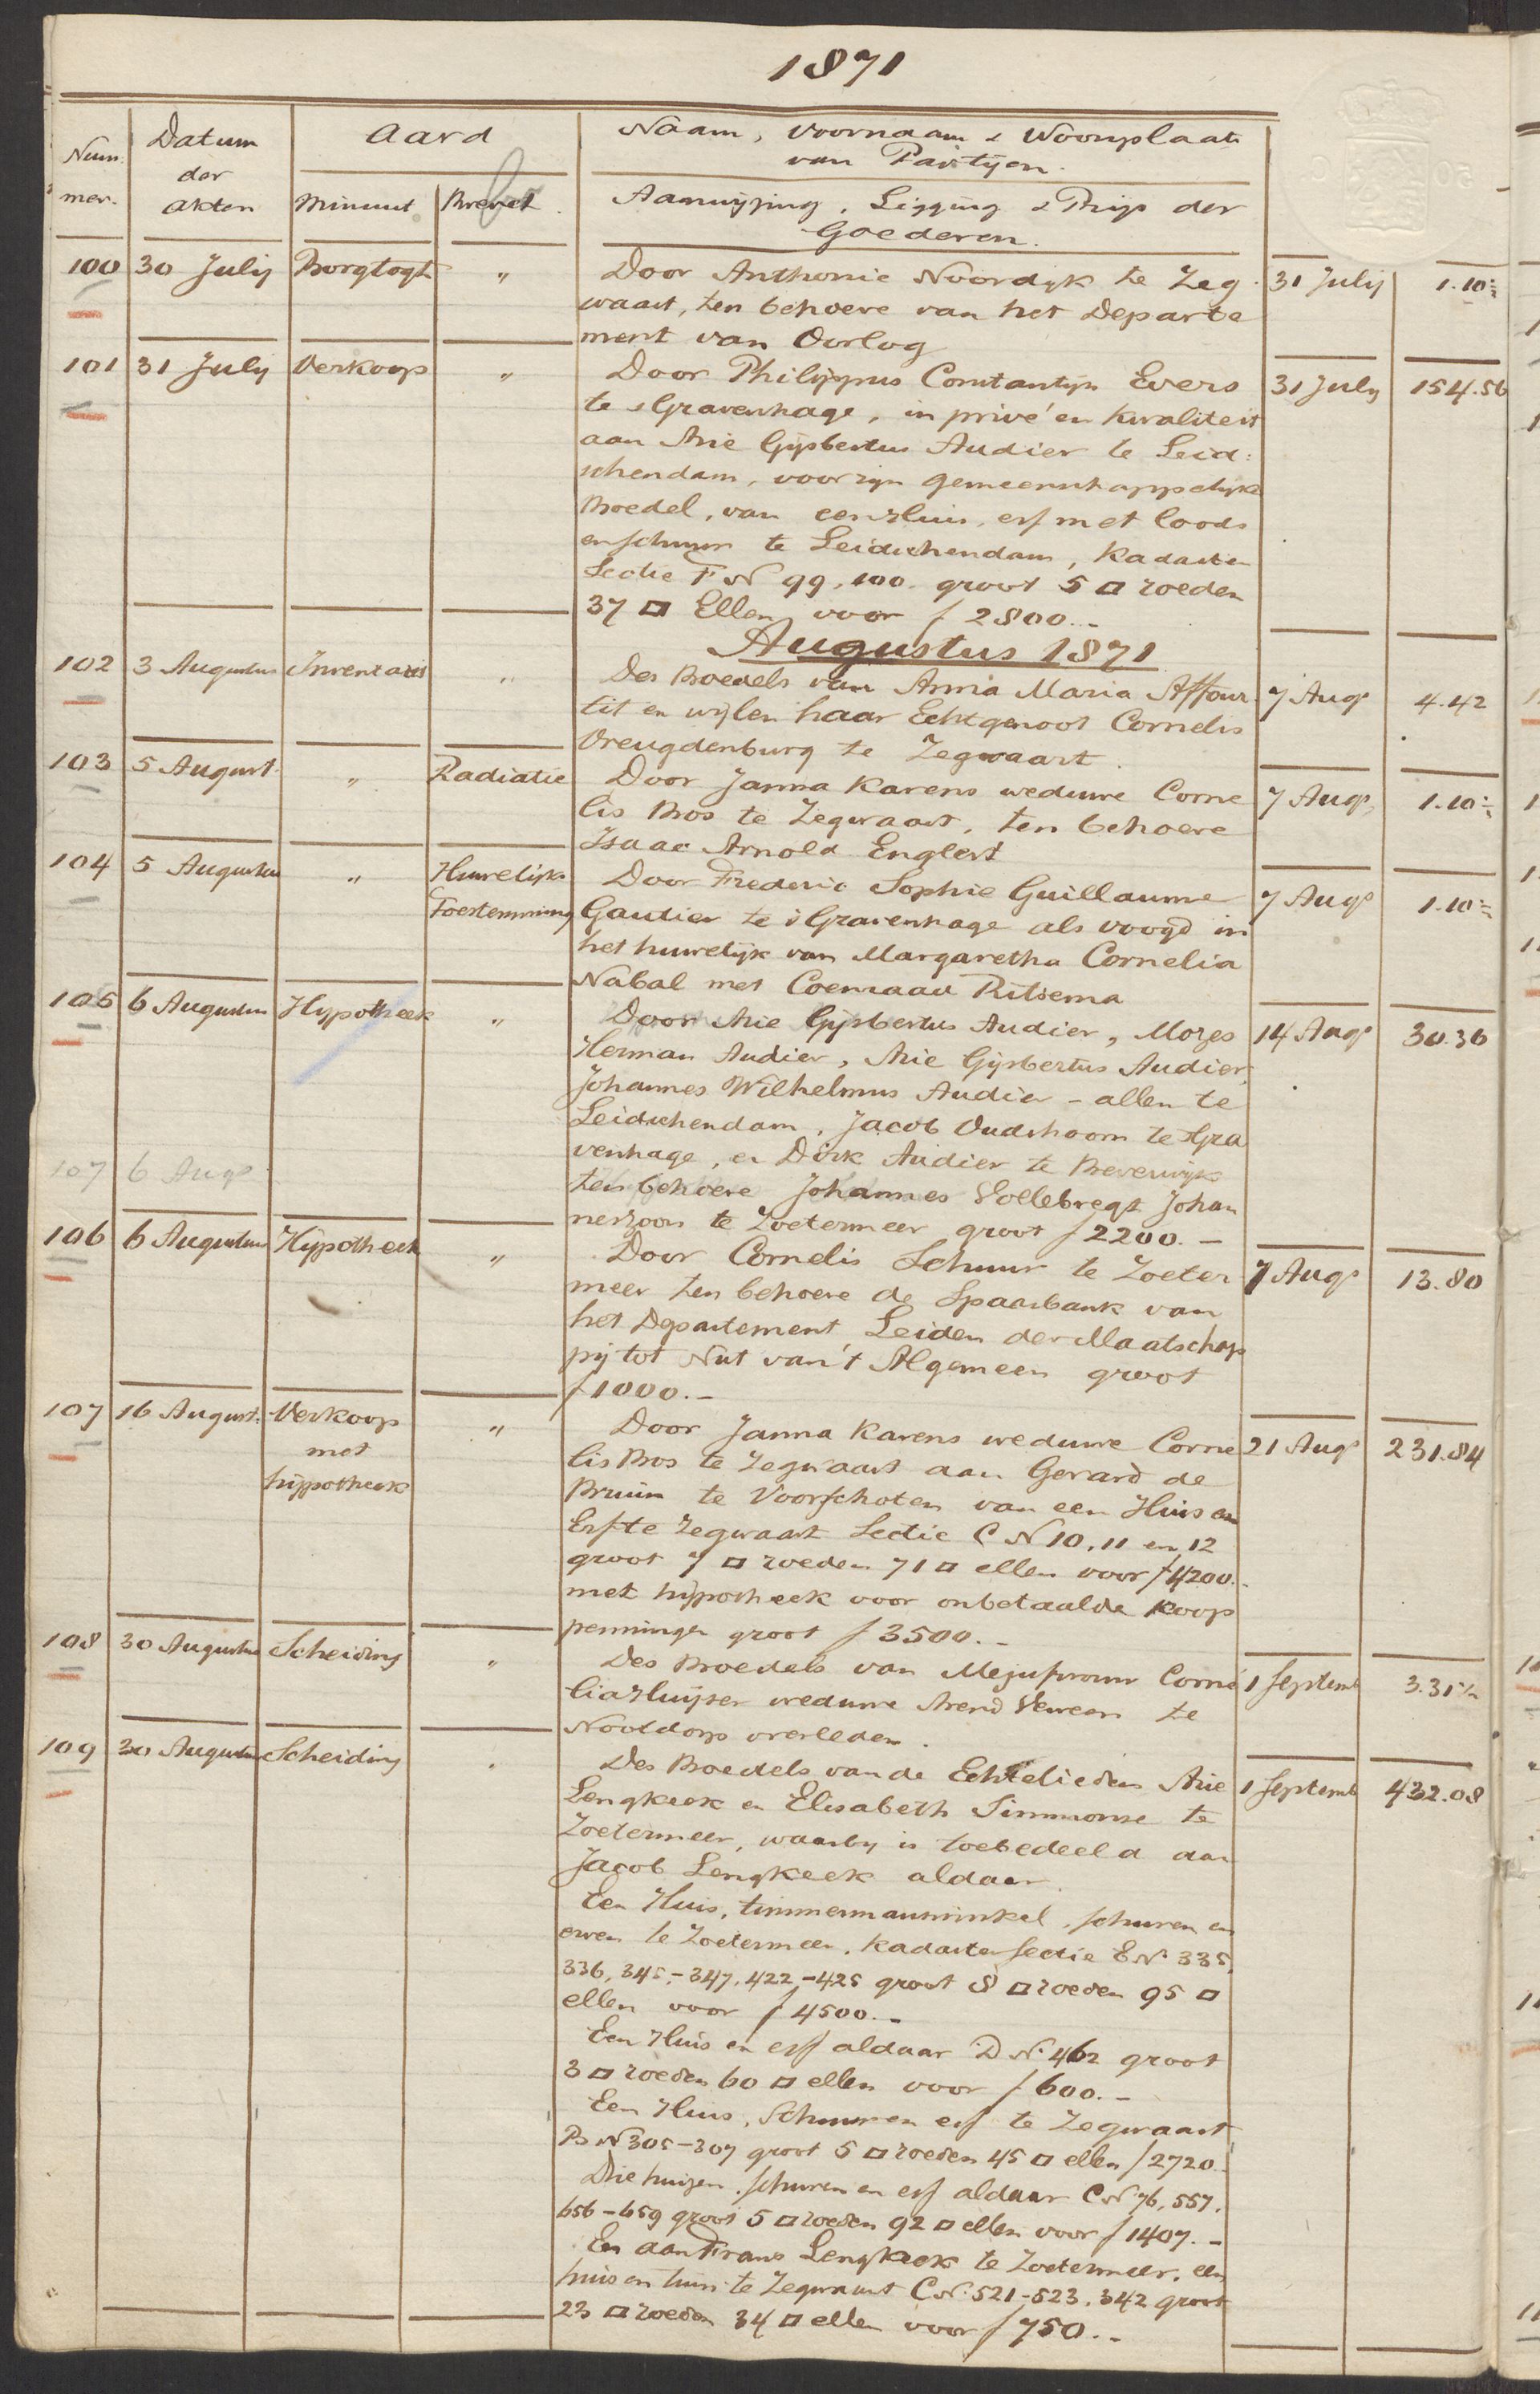 1871
Nummer.
Datum der Akten
Aard
Minuut
Brevet.
Naam, Voornaam & Woonplaats
van Partijen.
Aanwijzing, Ligging & Prijs der
Goederen.
100 30 Julij Borgtogt " Door Anthonie Noordijk te Zeg 31 Julij 1.10½
waart, ten behoeve van het Departe
ment van Oorlog
101 31 July Verkoop " Door Philippus Constantijn Evers 31 July 154.56
te sGravenhage, in privé en kwaliteit
aan Arie Gijsbertus Audier te Leid:
schendam, voor zijn gemeenschappelijke
Boedel, van een Huis, erf met loods
en schuur te Leidschendam, Kadaster
Sectie F N 99, 100. groot 5 □ roeden
37 □ Ellen voor f 2800.-
Augustus 1871
102 3 Augustus Inventaris " Des Boedels van Anna Maria Affour 7 Augs 4.42
tit en wijlen haar Echtgenoot Cornelis
Vreugdenburg te Zegwaart.
103 5 August. " Radiatie Door Janna Karens weduwe Corne 7 Augs 1.10½
lis Bos te Zegwaart, ten behoeve
Isaac Arnold Englert
104 5 Augustus " Huwelijks Door Frederic Sophie Guillaume 7 Augs 1.10½
Toestemming Gautier te sGravenhage als voogd in
het huwelijk van Margaretha Cornelia
Nabal met Coenraad Ritsema
105 6 Augustus Hypotheek " Door Arie Gijsbertus Audier, Mozes 14 Augs 30.36
Herman Audier, Arie Gijsbertus Audier,
Johannes Wilhelmus Audier - allen te
Leidschendam, Jacob Oudshoorn te sGra
venhage, en Dirk Audier te Beverwijk
107 6 Augs
ten behoeve Johannes Vollebregt Johan
neszoon te Zoetermeer groot f 2200.-
106 6 Augustus Hypotheek " Door Cornelis Schuur te Zoeter 7 Augs 13.80
meer ten behoeve de Spaarbank van
het Departement Leiden der Maatschap
pij tot Nut van't Algemeen groot
f 1000.-
107 16 August. Verkoop " Door Janna Karens weduwe Corne 21 Augs 231.84
met lis Bos te Zegwaart aan Gerard de
hijpotheek Bruin te Voorschoten van een Huis en
Erf te Zegwaart Sectie C N 10, 11 en 12
groot 7 □ roeden 71 □ ellen voor f 4200.-
met hijpotheek voor onbetaalde koop
penningen groot f 3500.-
108 30 Augustus Scheiding " Des Boedels van Mejufvrouw Corne 1 Septemb 3.31½
lia Huijser weduwe Arend Verveen te
Nootdorp overleden.
109 30 Augustus Scheiding " Des Boedels van de Echtelieden Arie 1 Septemb 432.08
Lengkeek en Elisabeth Simmonse te
Zoetermeer, waarbij is toebedeeld aan
Jacob Lengkeek aldaar.
Een Huis, timmermanswinkel, schuren en
erven te Zoetermeer, Kadaster Sectie E No 335,
336, 345,-347, 422,-425 groot 8 □ roeden 95 □
ellen voor f 4500.-
Een Huis en erf aldaar D No 462 groot
3 □ roeden 60 □ ellen voor f 600.-
Een Huis, Schuur en erf te Zegwaart
B N 305-307 groot 5 □ roeden 45 □ ellen f 2720.-
Drie huizen, schuren en erf aldaar C N 76, 557,
656-659 groot 5 □ roeden 92 □ ellen voor f 1407.-
En aan Frans Lengkeek te Zoetermeer, een
huis en tuin te Zegwaart C No 521-523, 342 groot
23 □ roeden 34 □ ellen voor f 750.-